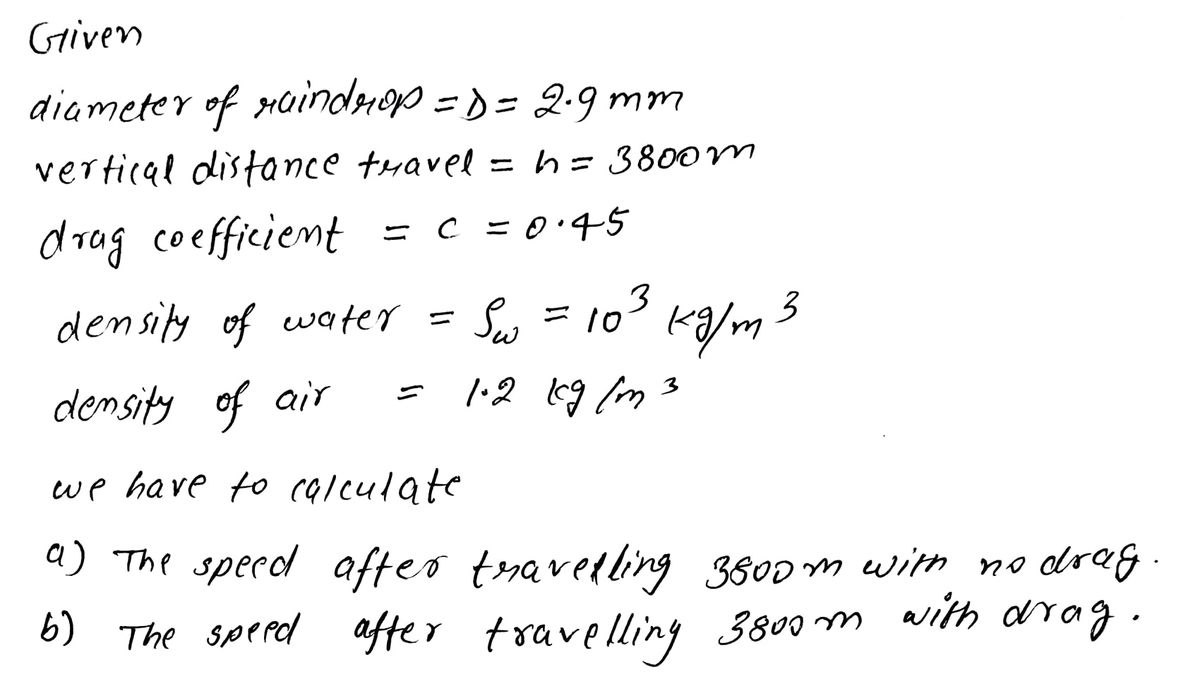 Given
diameter of raindrop = D = 2.9 mm
vertical distance travel = h = 3800m
drag coefficient = C = 0.45
density of water = ρw = 10³ kg/m³
density of air = 1.2 kg/m³
we have to calculate
a) The speed after travelling 3800m with no drag.
b) The speed after travelling 3800m with drag.